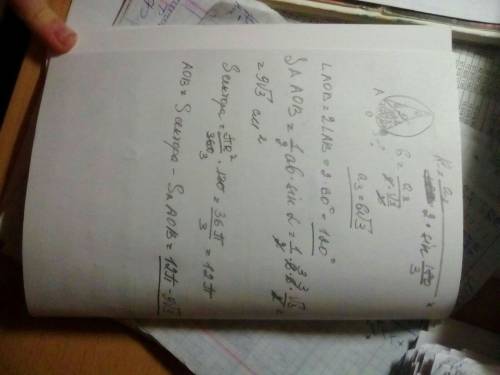 R = a₃ / 2 · sin 180/3
6 = a₃ / 2 · √3/2
a₃ = 6√3
A
B
O
∠AOB = 2∠ = 2 · 60° = 120°
S△AOB = 1/2 ab · sin α = 1/2 · 6 · 6 · √3/2 =
= 9√3 см²
S сектора = πR²/360 · 120 = 36π/3 = 12π
AOB = S сектора - S△AOB = 12π - 9√3